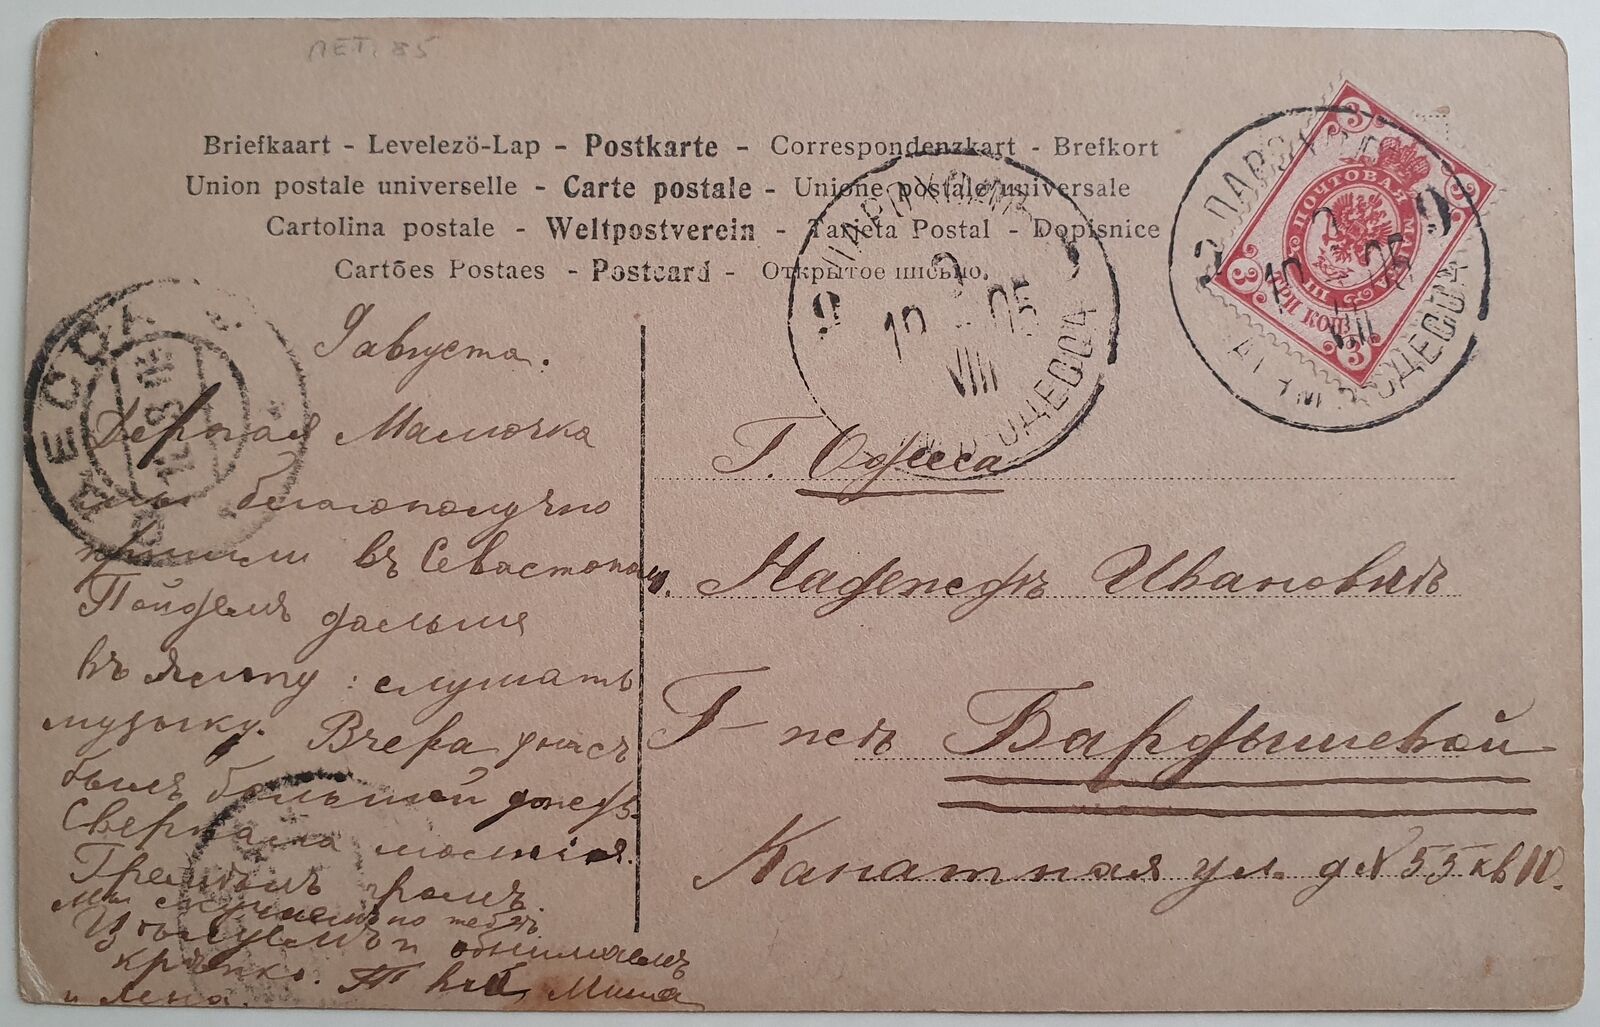 ПЕТ. 85
Briefkaart - Levelező-Lap - Postkarte - Correspondenzkart - Brefkort
Union postale universelle - Carte postale - Unione postale universale
Cartolina postale - Weltpostverein - Tarjeta Postal - Dopisnice
Cartões Postaes - Postcard - Открытое письмо.
ПОЧТОВАЯ МАРКА
3
3
3
3
ТРИ КОП.
2
9
10 05
VIII
ОДЕССА
ПАРОХОДН
9
2
10 05
VIII
ОДЕССА
ОДЕССА
10.8
9 августа.
Дорогая Мамочка
мы благополучно
пришли въ Севастополь.
Пойдемъ дальше
въ Ялту: слушать
музыку. Вчера у насъ
былъ большой дождь.
Сверкала молнія.
Гремѣлъ громъ.
Мы скучаемъ по тебѣ
Цѣлуемъ и обнимаемъ
крѣпко. Миша
и Лена.
Г. Одесса
Надеждѣ Ивановнѣ
Г-жѣ Бардышевой
Канатная ул. д № 55 кв 10.